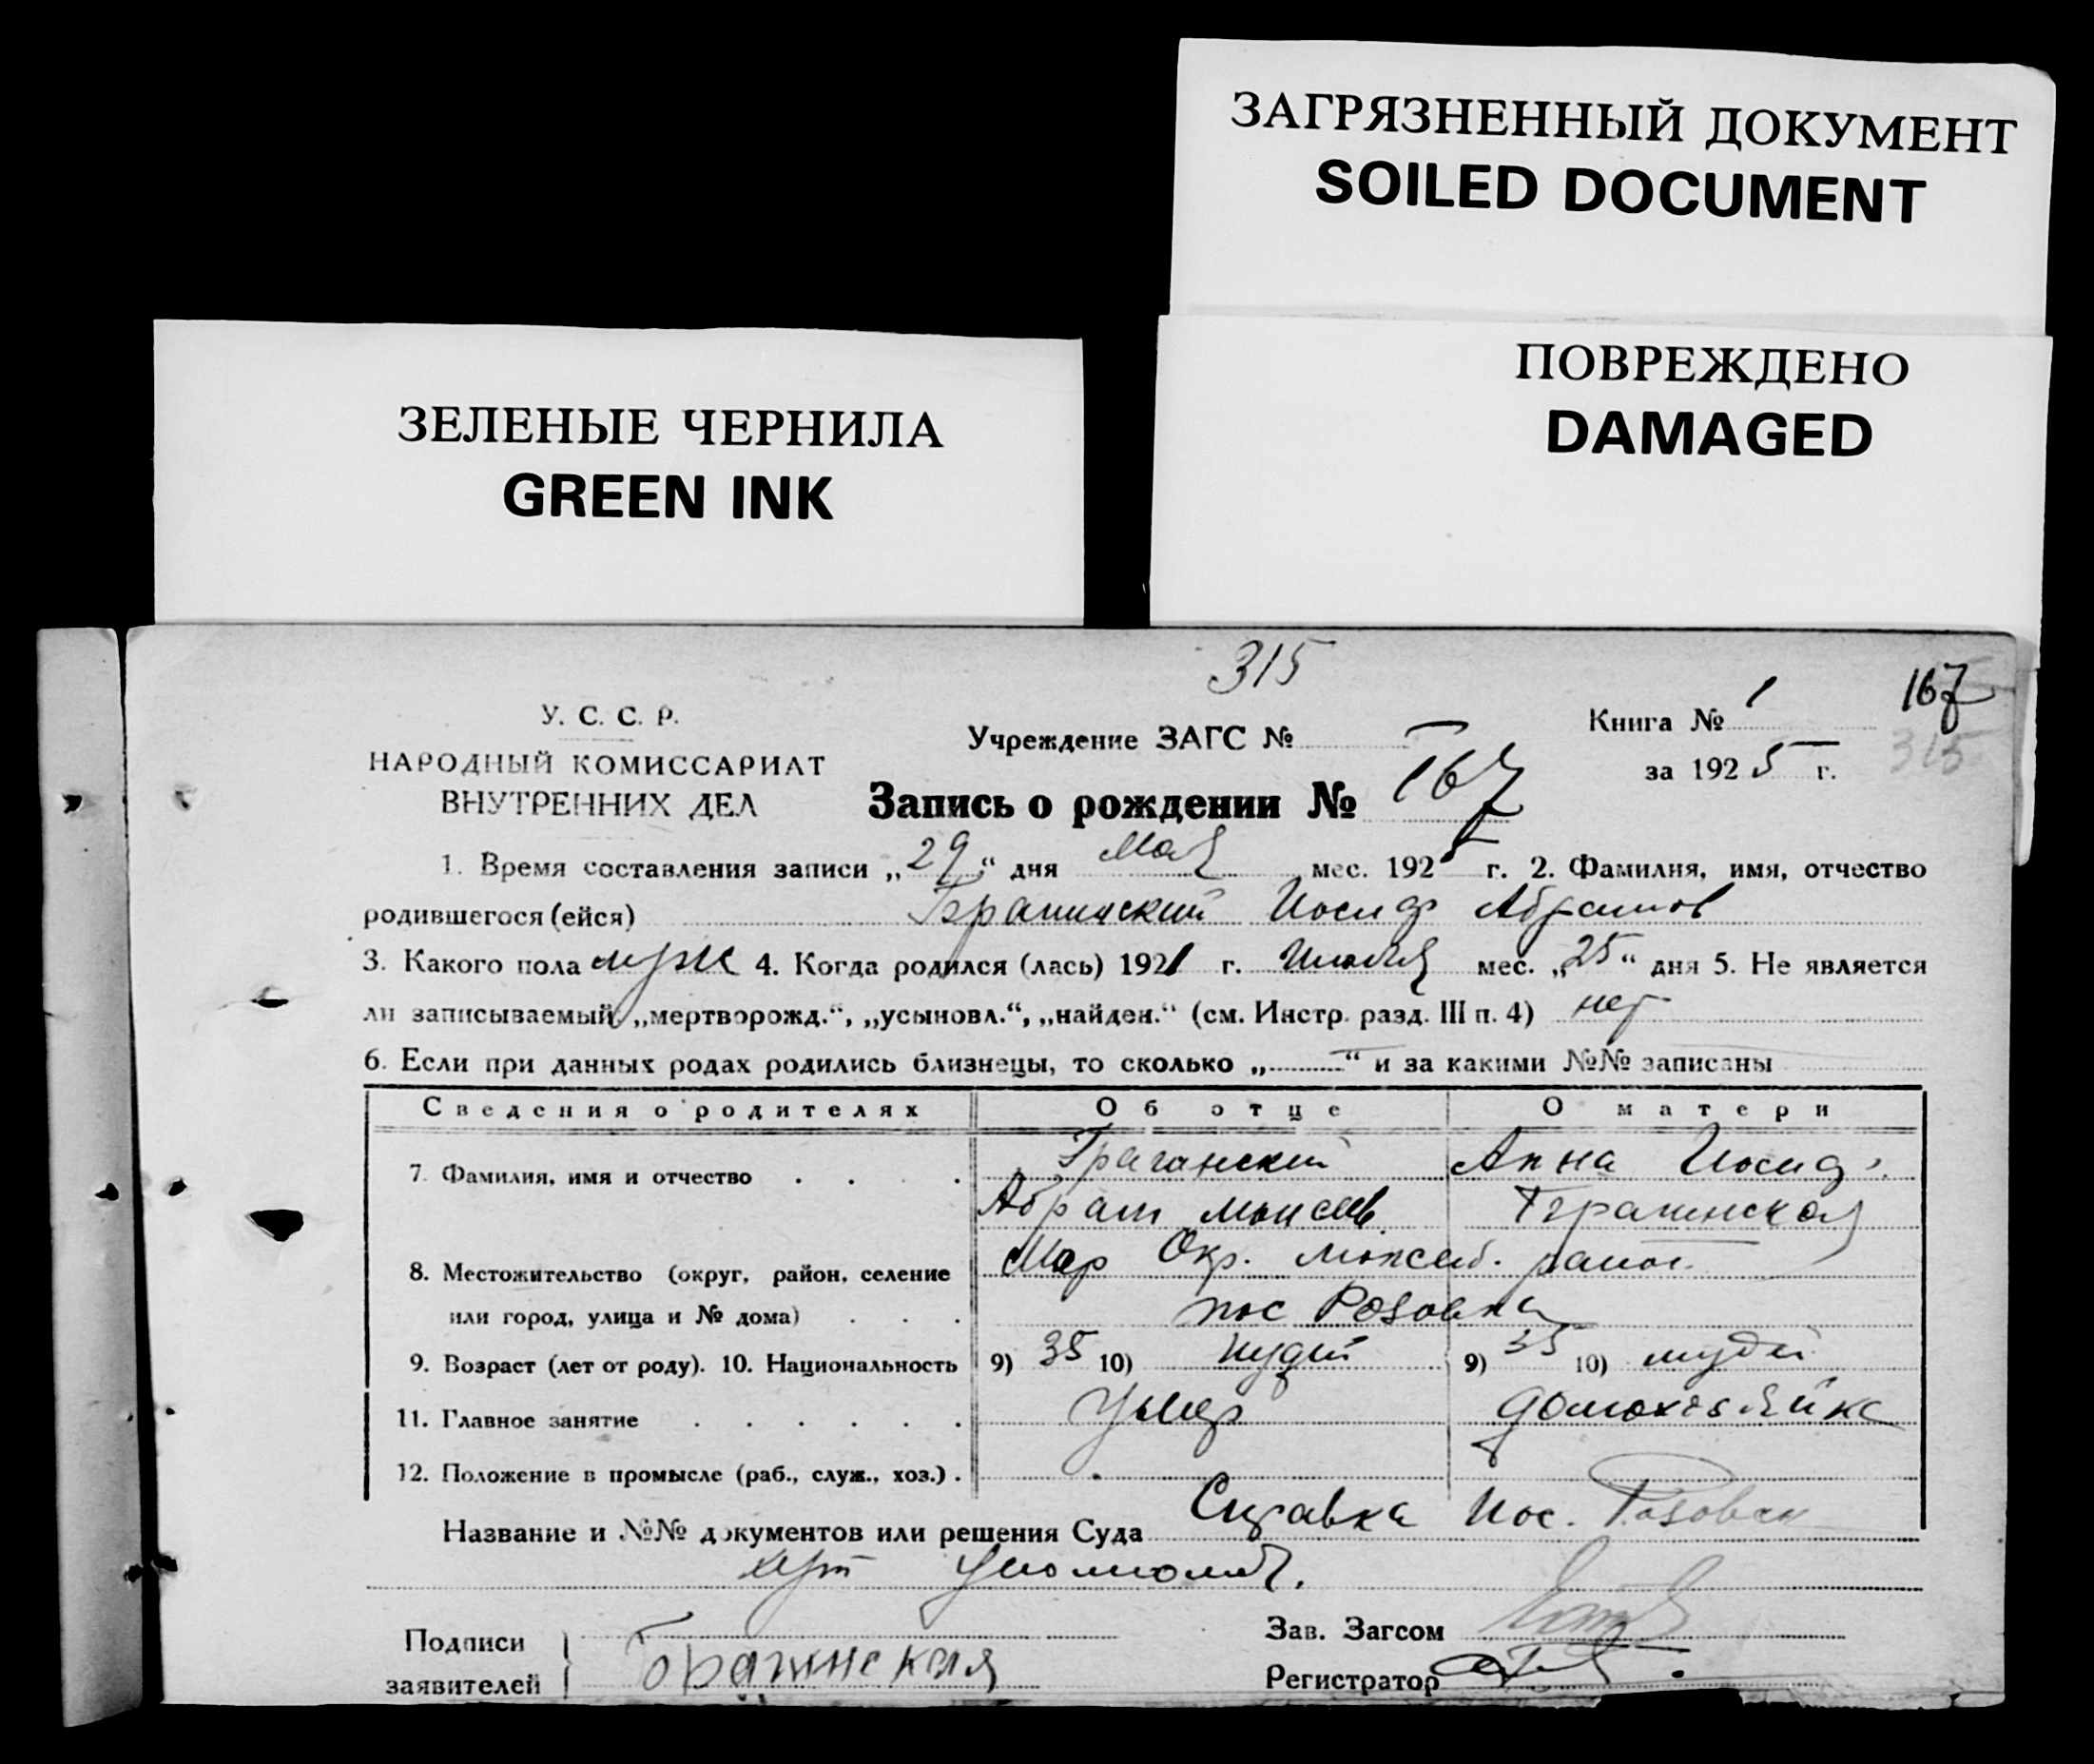 ЗАГРЯЗНЕННЫЙ ДОКУМЕНТ
SOILED DOCUMENT
ПОВРЕЖДЕНО
DAMAGED
ЗЕЛЕНЫЕ ЧЕРНИЛА
GREEN INK
315
167
315
У. С. С. Р.
НАРОДНЫЙ КОМИССАРИАТ
ВНУТРЕННИХ ДЕЛ
Учреждение ЗАГС №
Книга № 1
за 1925 г.
Запись о рождении № 167
1. Время составления записи „29“ дня мая мес. 1925 г. 2. Фамилия, имя, отчество
родившегося (ейся) Иосиф Абрамов
3. Какого пола муж 4. Когда родился (лась) 1921 г. мес. „25“ дня 5. Не является
ли записываемый „мертворожд.“, „усыновл.“, „найден.“ (см. Инстр. разд. III п. 4) нет
6. Если при данных родах родились близнецы, то сколько „ “ и за какими №№ записаны
Сведения о родителях Об отце О матери
7. Фамилия, имя и отчество Анна Иосиф.
Абрам Моисеев
8. Местожительство (округ, район, селение Мар Окр. район
или город, улица и № дома) пос Розовка
9. Возраст (лет от роду). 10. Национальность 9) 35 10) иудей 9) 35 10) иудей
11. Главное занятие Умер домохозяйка
12. Положение в промысле (раб., служ., хоз.)
Название и №№ документов или решения Суда Справка Пос. Розовск
Подписи
заявителей Брагинская
Зав. Загсом
Регистратор